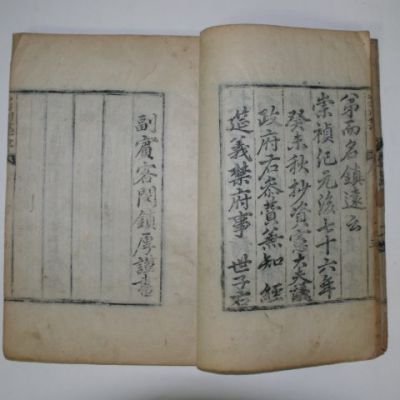 苐而名鎮遠云
崇禎紀元後七十六年
癸未秋杪資憲大夫議
政府右參贊兼知經
筵義禁府事 世子右
副賓客閔鎮厚謹書